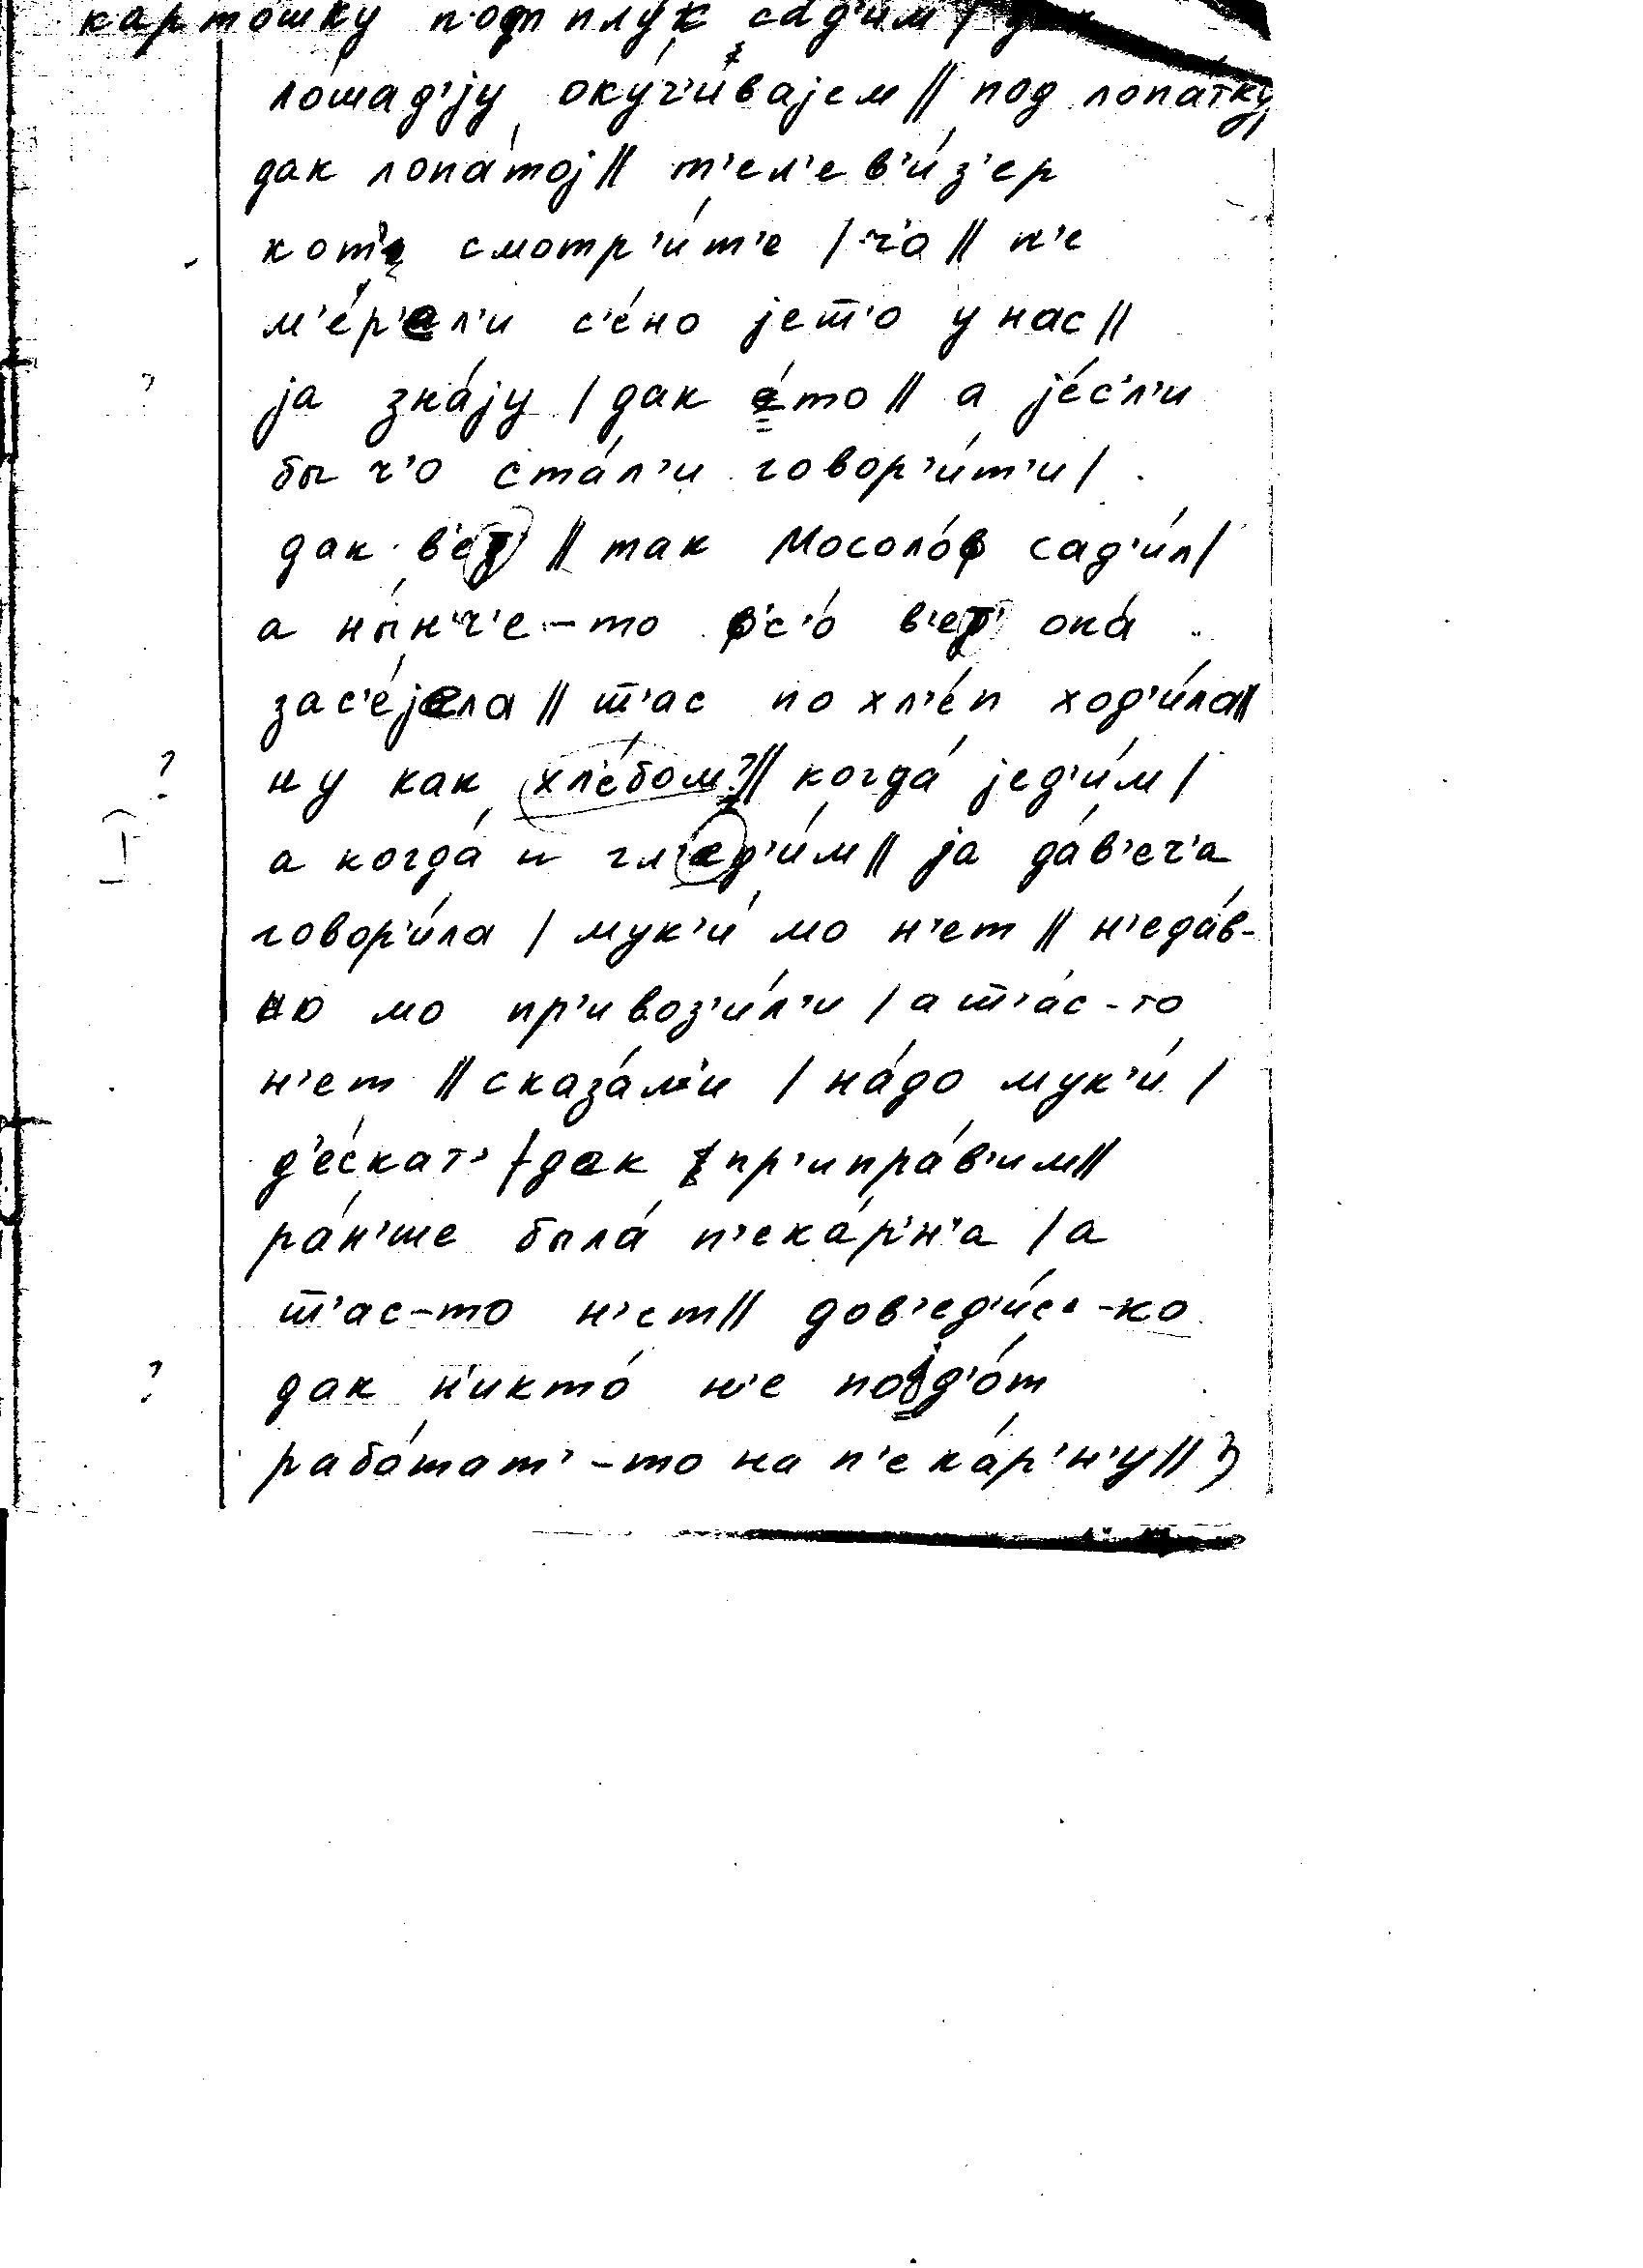 карто́шку под плу́к са́д'им /
ло́шад'jу оку́ч'иваjем // под лопа́тку,
дак лопа́тоj // т'ел'ев'и́з'ер
смотр'и́т'е / ч'о // н'е
м'е́р'ел'и с'е́но jет'о у нас //
jа зна́jу / дак е́то // а jе́с'л'и
бы ч'о ста́л'и говор'и́т'и /
дак в'ет // так Мосоло́ф сад'и́л /
а ны́н'ч'е-то ф'с'о́ в'ет' она́
зас'е́jела // т'ас по хл'е́п ход'и́ла //
ну как хл'е́бом? // когда́ jед'и́м /
а когда́ и гл'ед'и́м // jа да́в'еч'а
говор'и́ла / мук'и́ мо н'ет // н'еда́в-
но мо пр'ивоз'и́л'и / а т'а́с-то
н'ет // сказа́л'и / на́до мук'и́ /
д'е́скат' / дак пр'ипра́в'им //
ра́н'ше была́ п'ека́р'н'а / а
т'ас-то н'ет // дов'ед'и́с'-ко
дак н'икто́ н'е поjд'о́т
рабо́тат'-то на п'ека́р'н'у //